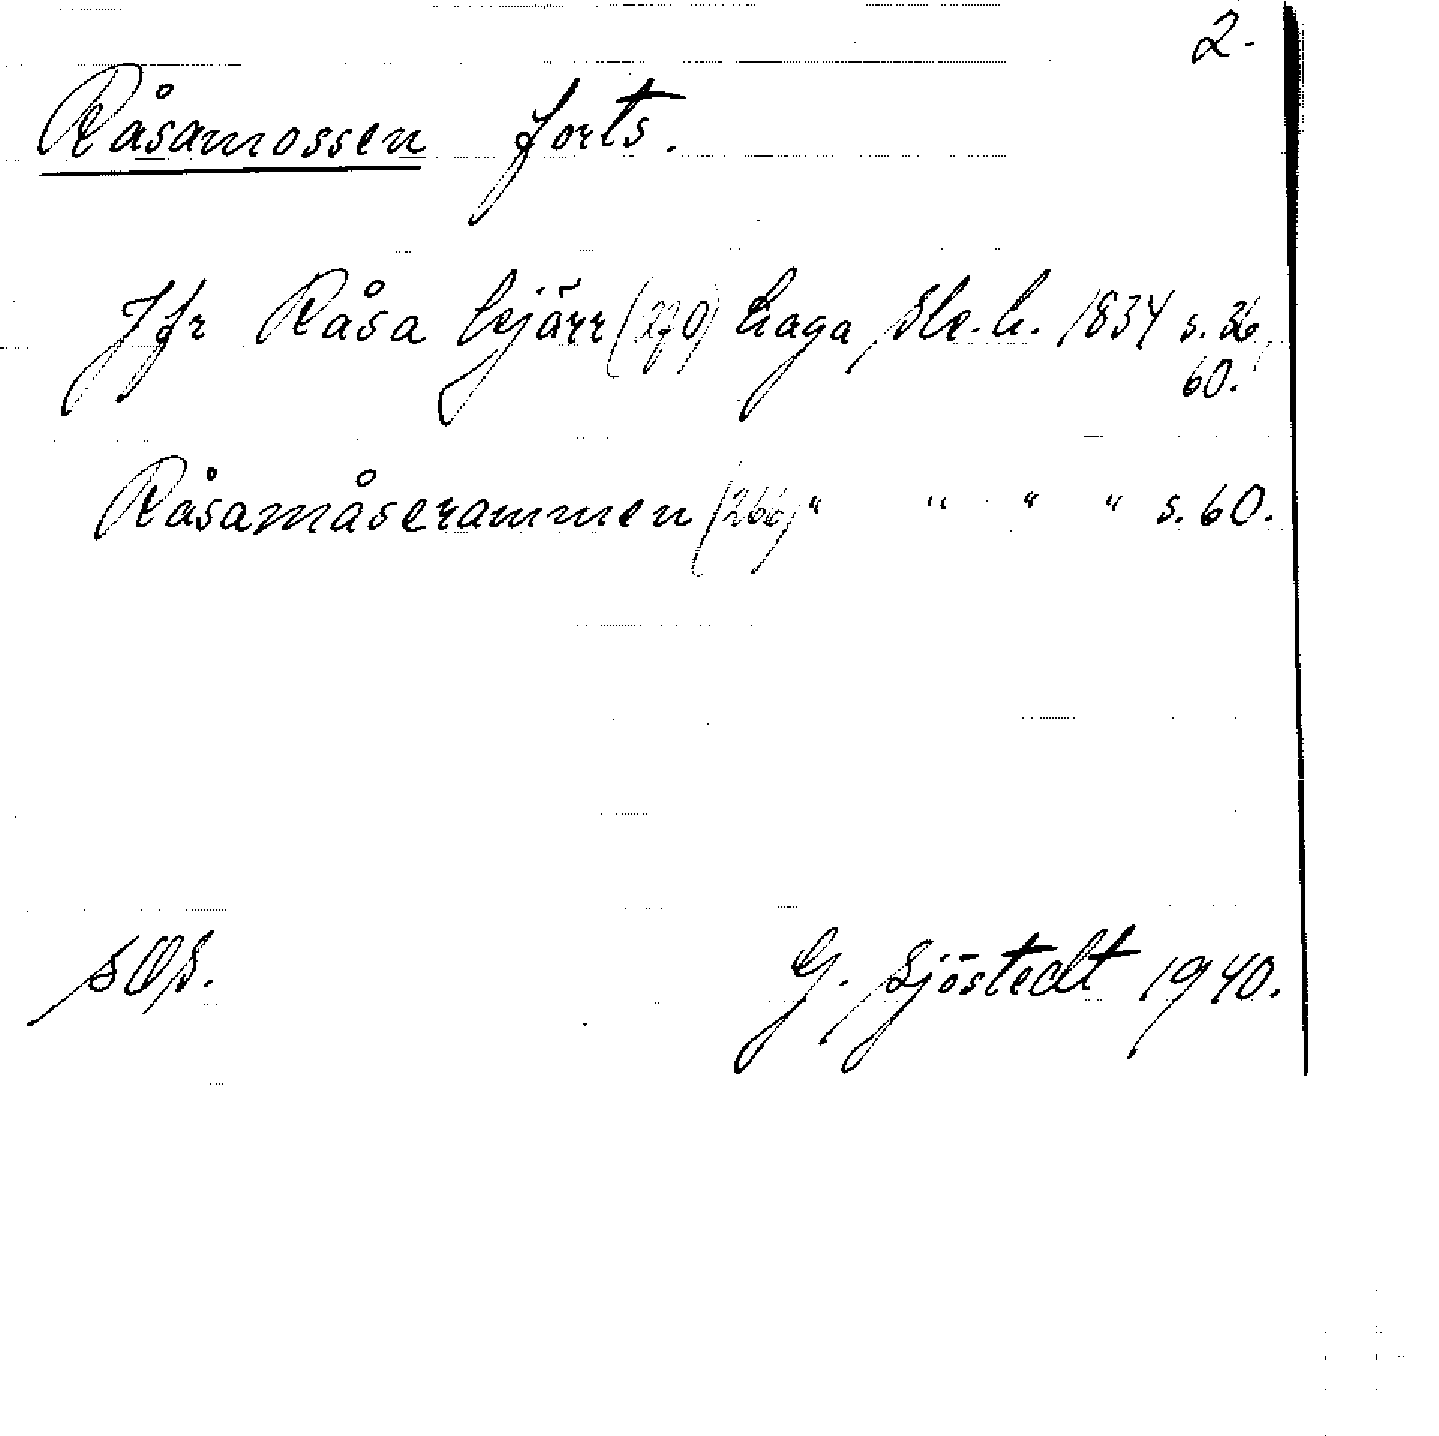 2.
Råsamossen forts.
Jfr Råsa kjärr (270) Laga sk.h. 1834 s. 36,
60.
Råsamåserammen (266) " " " " s. 60.
G. Sjöstedt 1940.